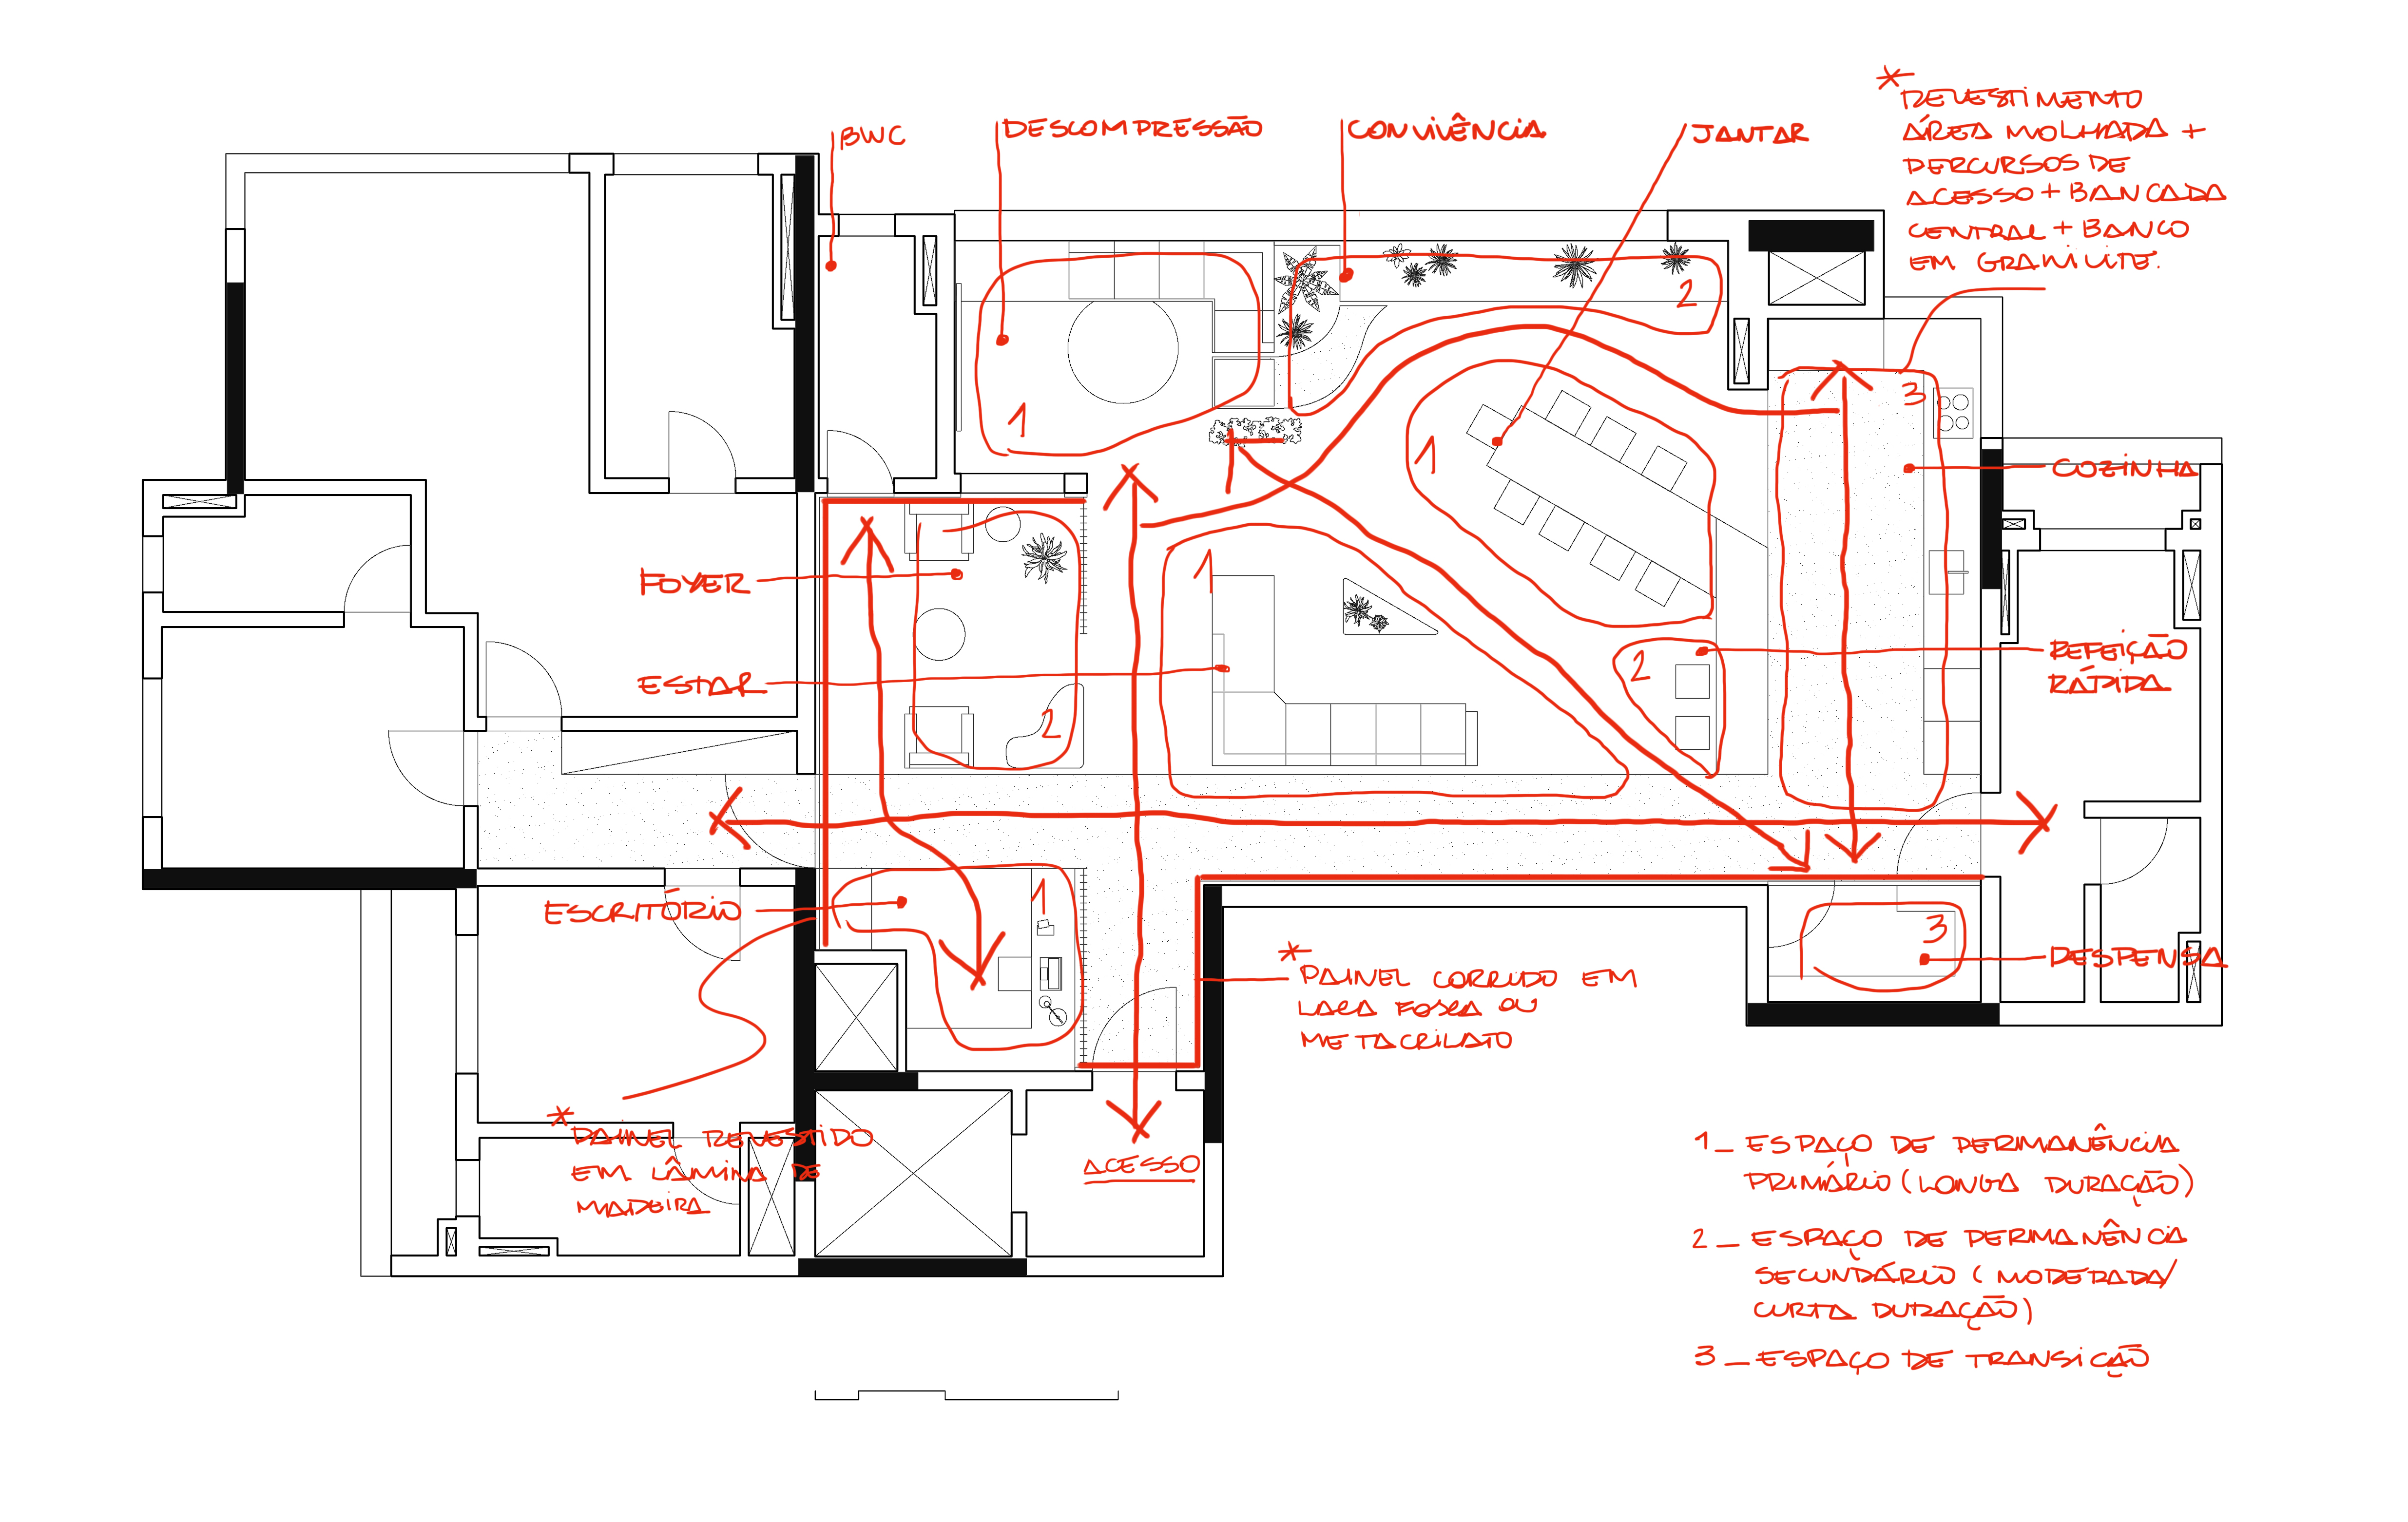 BWC
DESCOMPRESSÃO
CONVIVÊNCIA
JANTAR
*
REVESTIMENTO
ÁREA MOLHADA +
PERCURSOS DE
ACESSO + BANCADA
CENTRAL + BANCO
EM GRANILITE.
2
3
1
1
COZINHA
FOYER
1
ESTAR
2
2
REFEIÇÃO
RÁPIDA
ESCRITÓRIO
1
3
DESPENSA
*
PAINEL CORRIDO EM
LACA FOSCA OU
METACRILATO
*
PAINEL REVESTIDO
EM LÂMINA DE
MADEIRA
ACESSO
1_ ESPAÇO DE PERMANÊNCIA
PRIMÁRIO (LONGA DURAÇÃO)
2_ ESPAÇO DE PERMANÊNCIA
SECUNDÁRIO (MODERADA/
CURTA DURAÇÃO)
3_ ESPAÇO DE TRANSIÇÃO